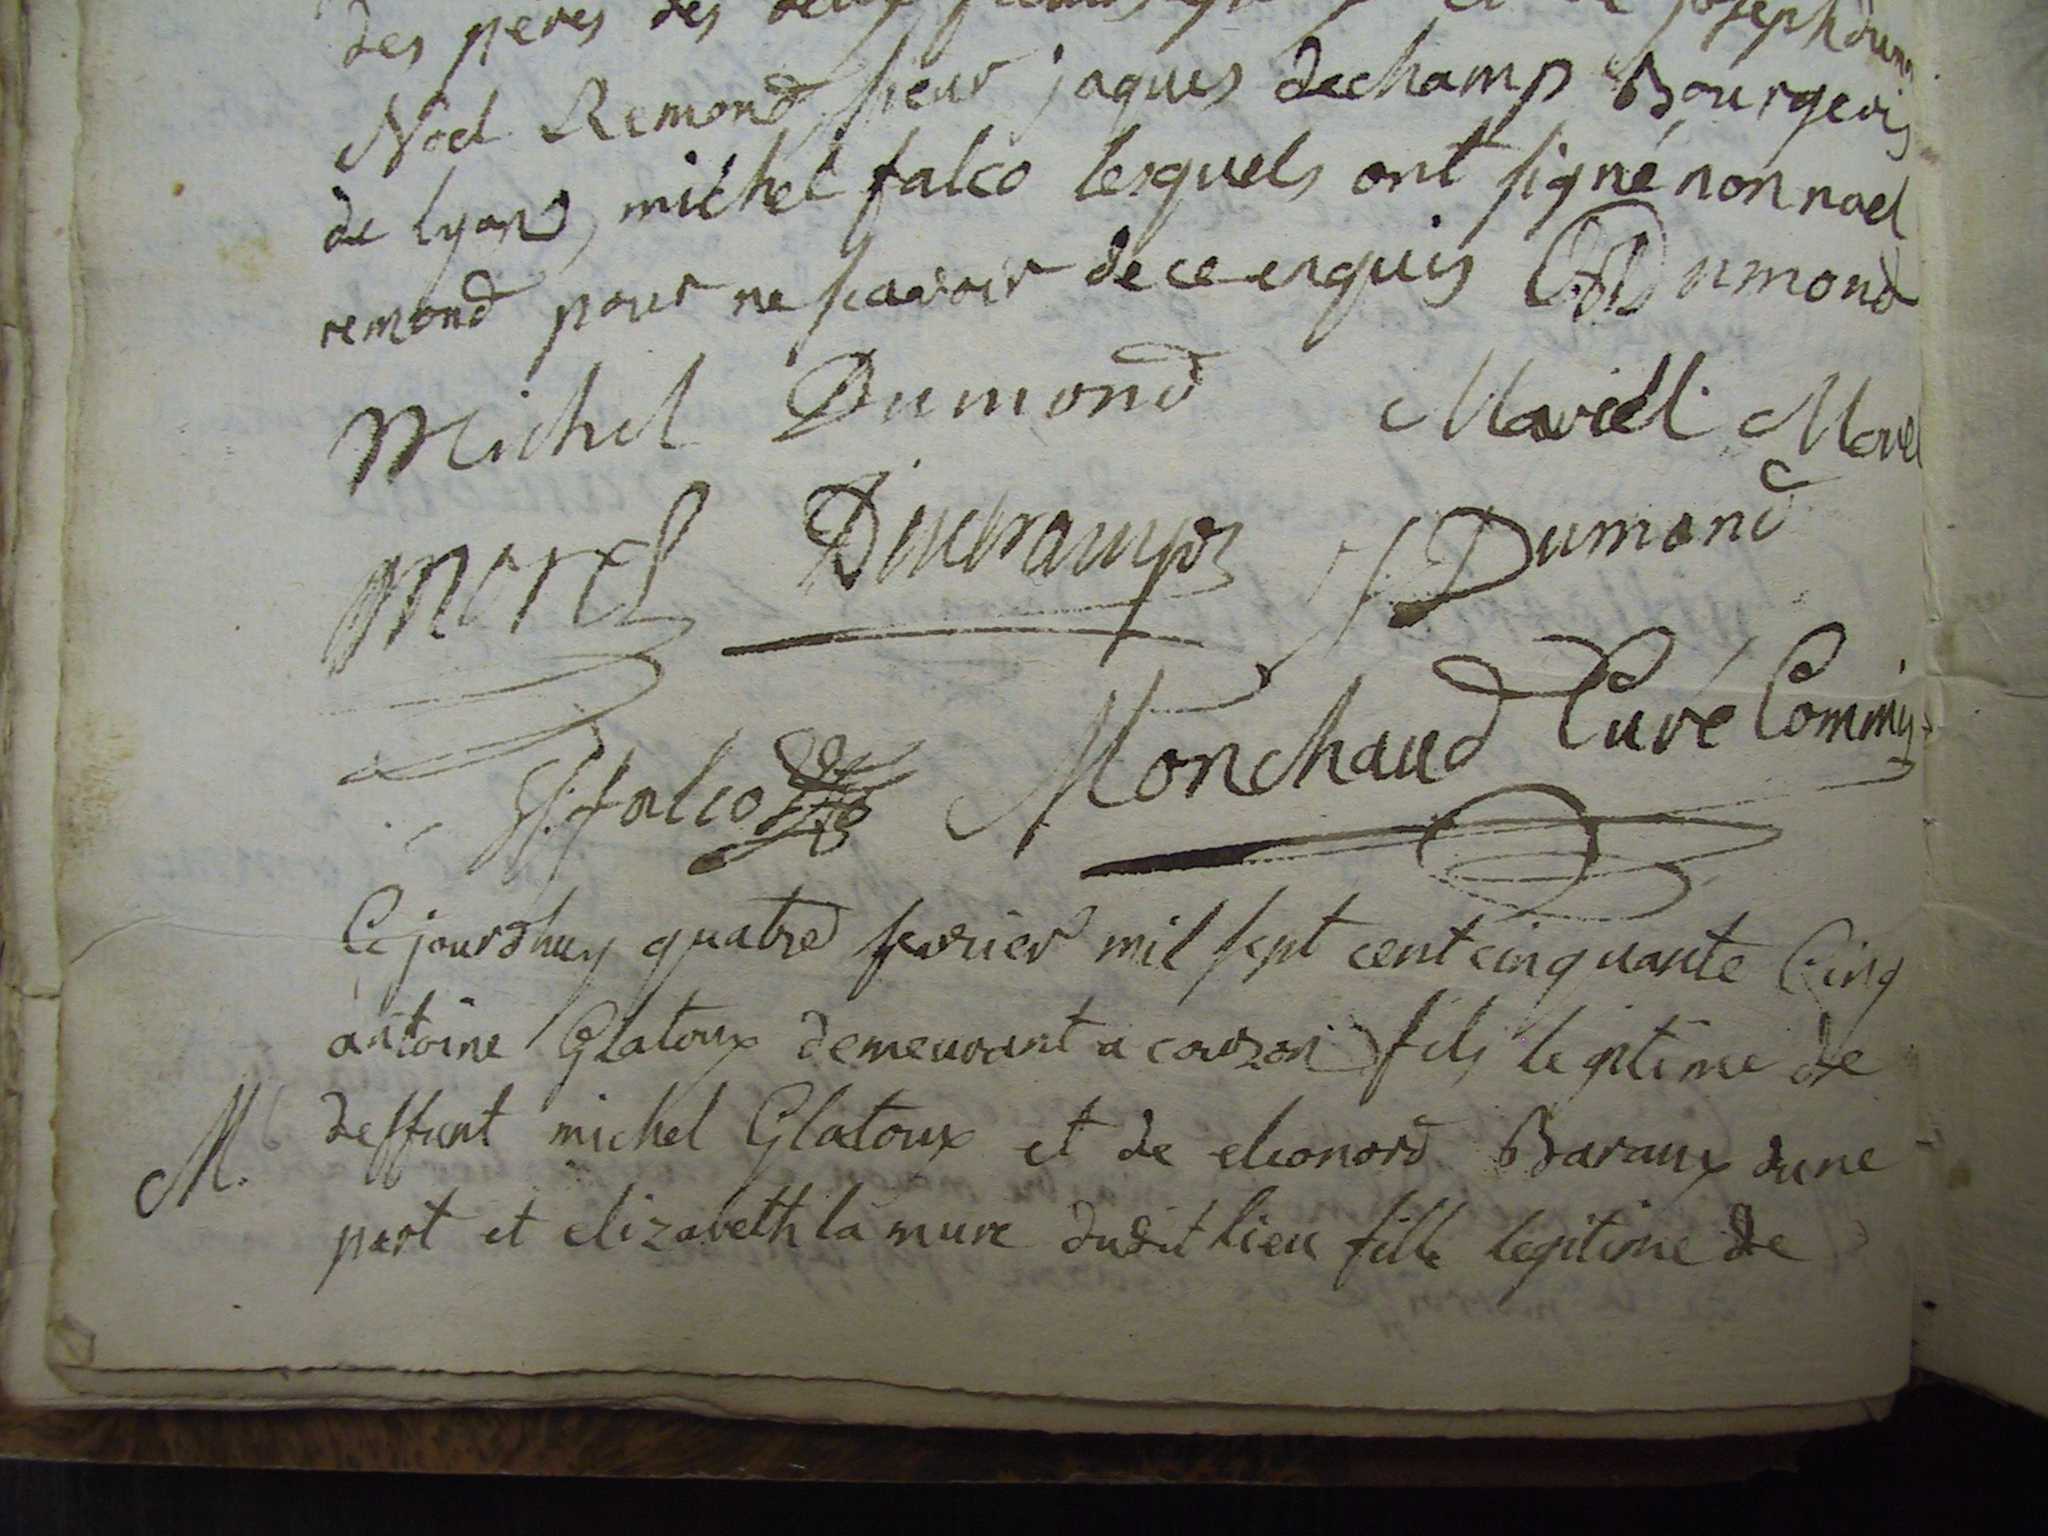 des pères des deux et de joseph dumond
Noel Remond sieur jaques dechamp Bourgeois
de lyon, michel falco lesquels ont signé non noel
remond pour ne scavoir de ce enquis Dumond
Michel Dumond Mariel Morel
Morel Dechamps J. Dumond
falco Monchaud Curé Commis
Ce jourdhuy quatre fevrier mil sept cent cinquante Cinq
antoine Glatoux demeurant a couzon fils legitime de
deffunt michel Glatoux et de eleonord Baraux dune
M.
part et elizabeth la mure dudit lieu fille legitime de